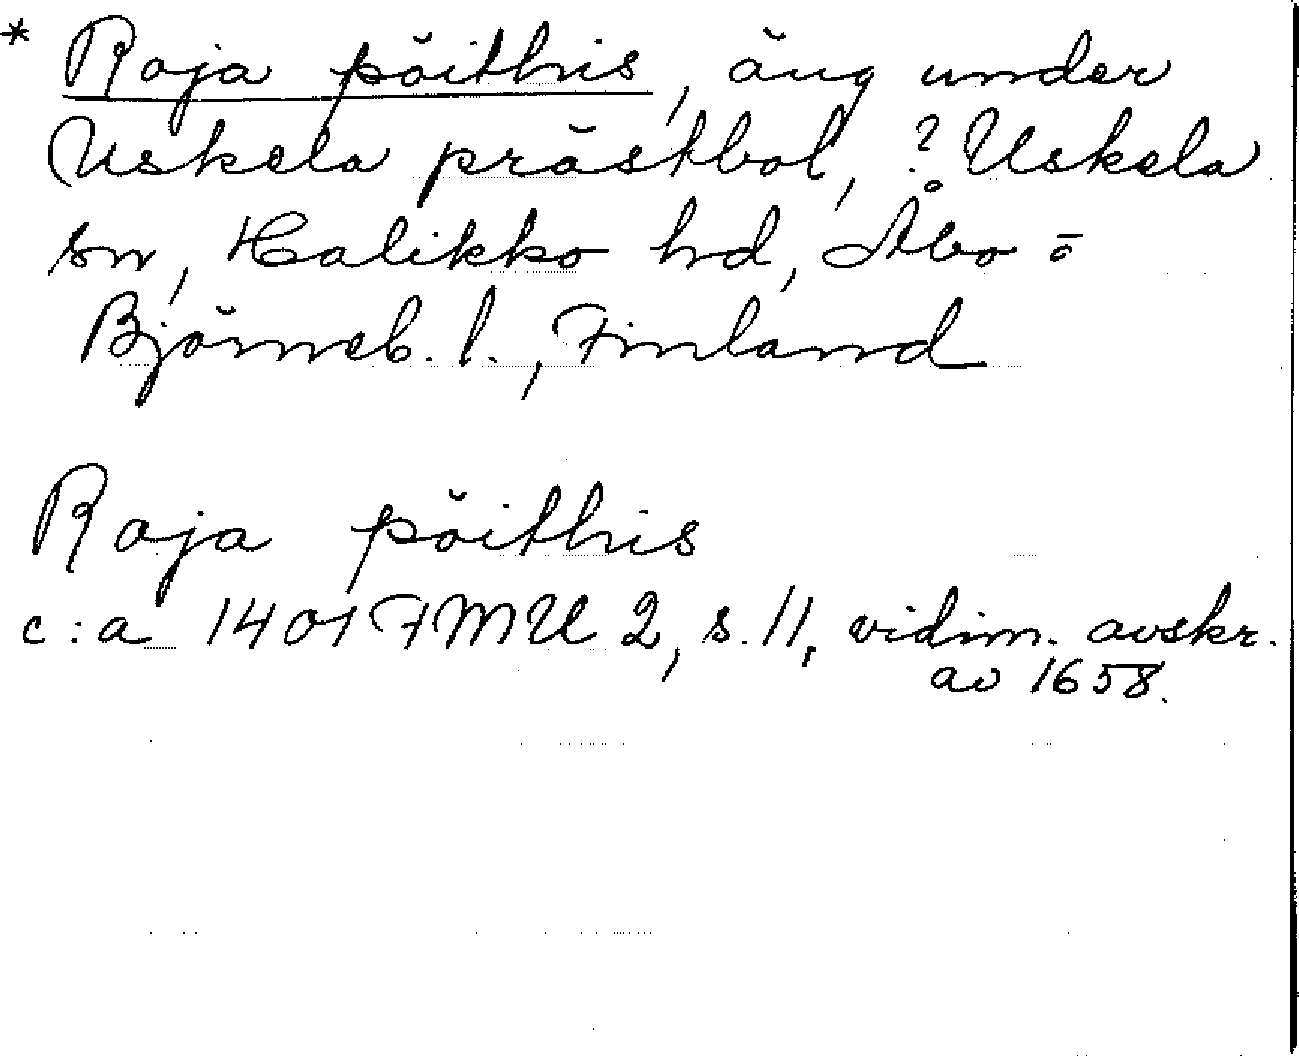 * Raja pöithis, äng under
Uskela prästbol, ? Uskela
sn, Halikko hd, Åbo o
Björneb. l., Finland
Raja pöithis
c:a 1401 FMU 2, s. 11, vidim. avskr.
av 1658.